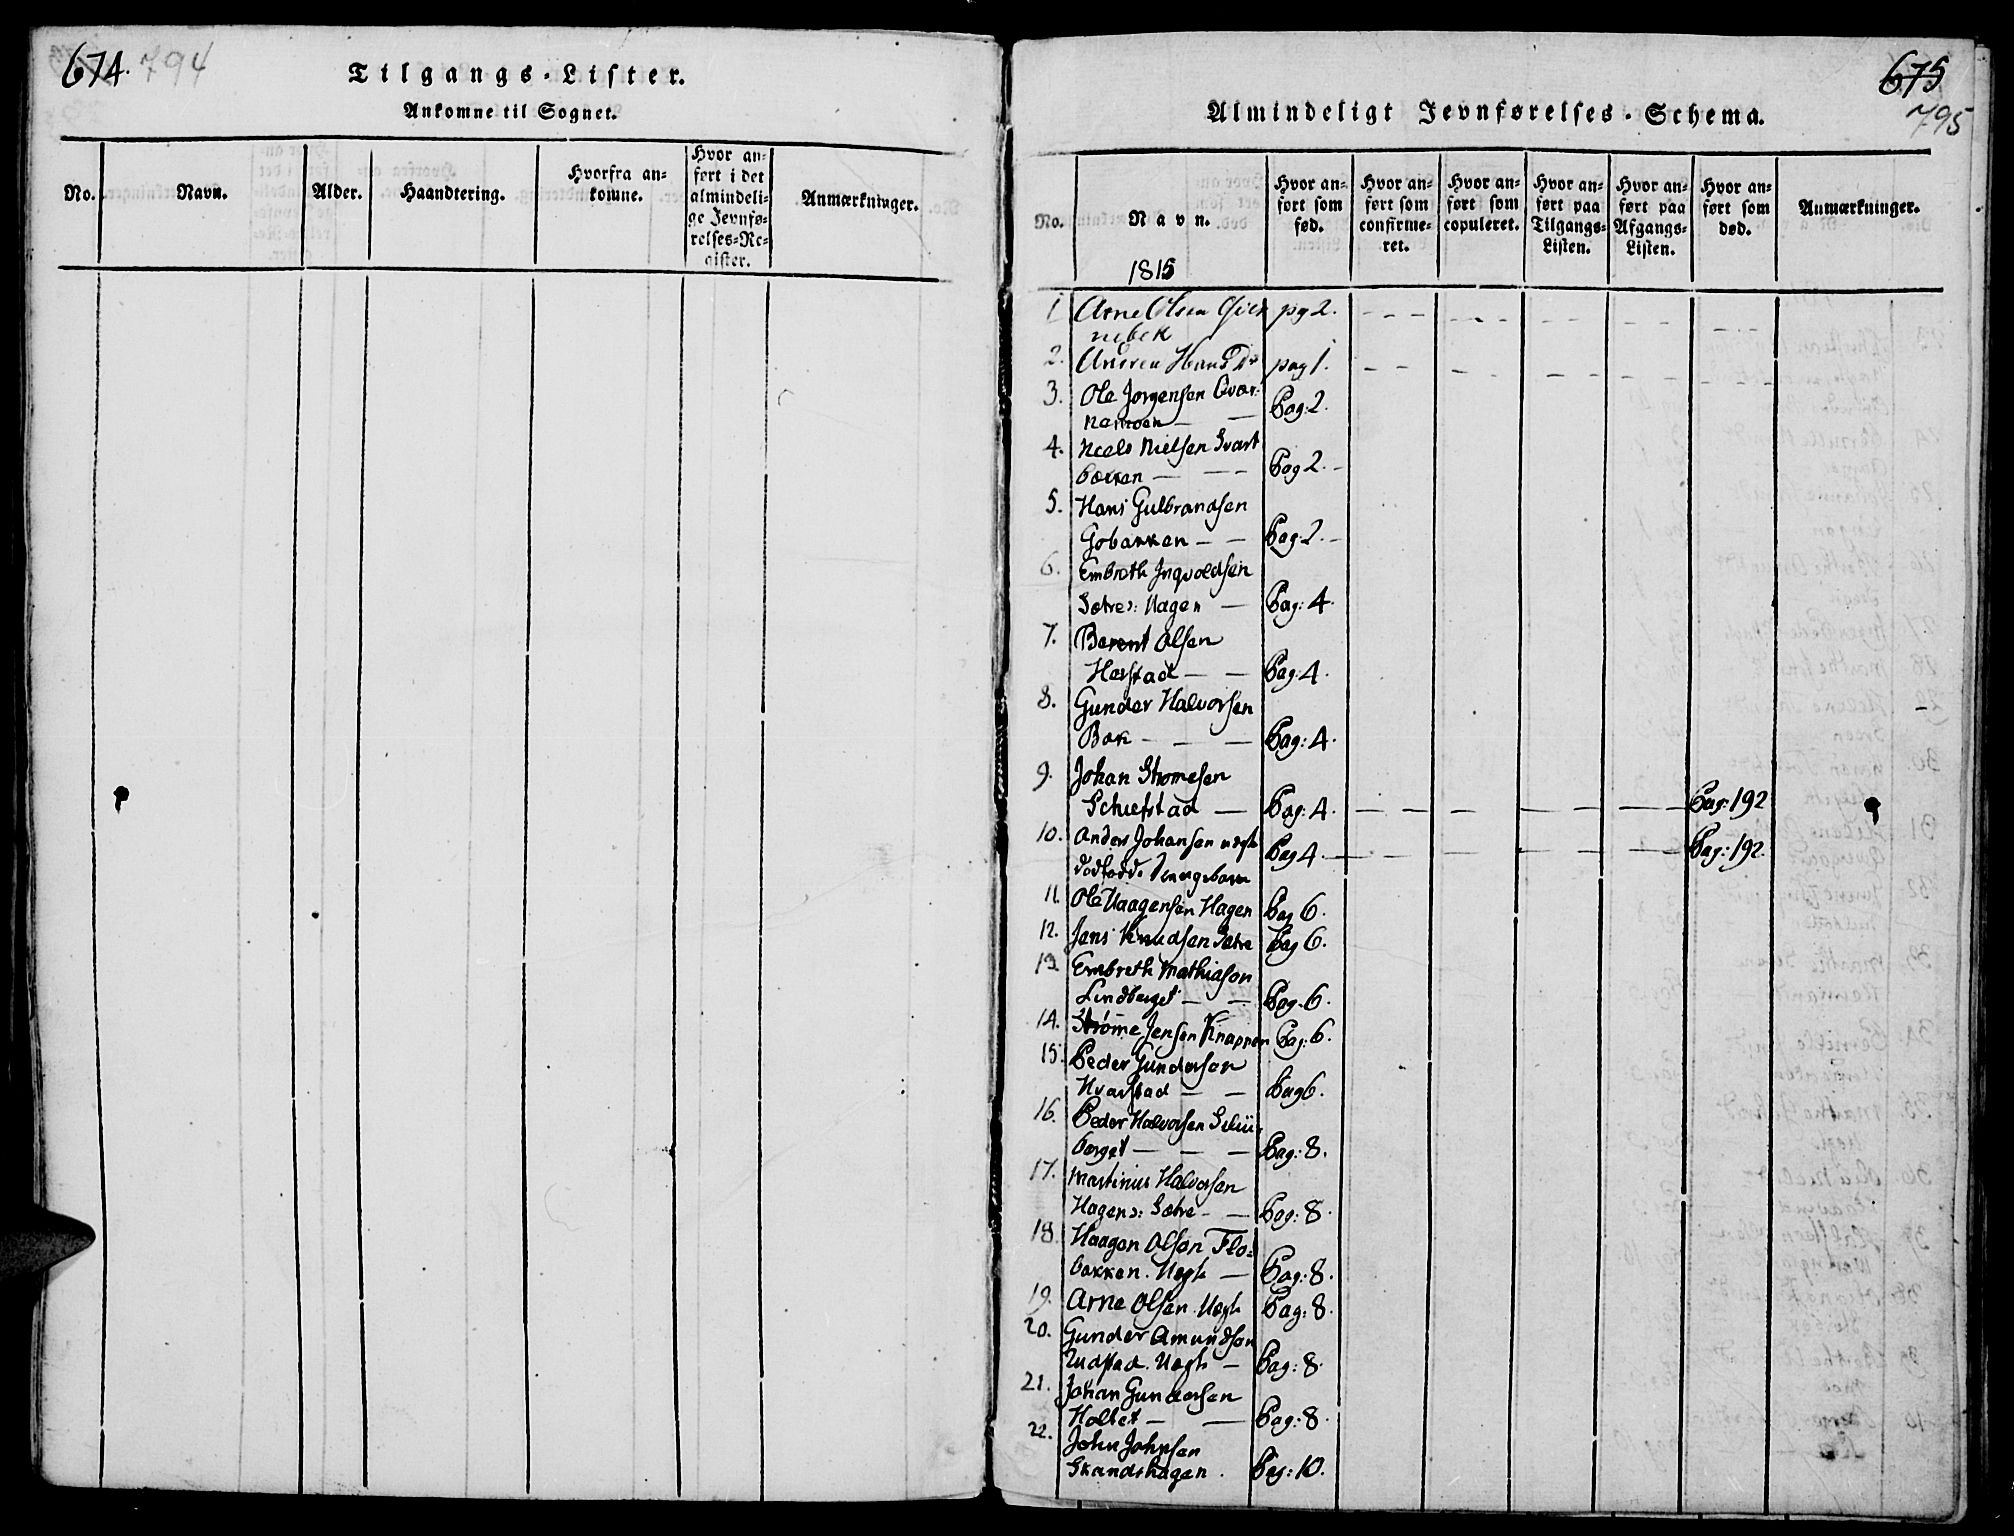 674. 794
Tilgangs-Lister.
Ankomne til Sognet.
No. Navn. Alder. Haandtering. Hvorfra ankomne. Hvor anført i det almindelige Jevnførelses-Register. Anmærkninger.
675
795
Almindeligt Jevnførelses-Schema.
No. Navn. Hvor anført som fød. Hvor anført som confirmeret. Hvor anført som copuleret. Hvor anført paa Tilgangs-Listen. Hvor anført paa Afgangs-Listen. Hvor anført som død. Anmærkninger.
1815
1 Arne Olsen pg 2.
2. Hans Dr pag 1.
3. Ole Jørgensen Qvær-
nemoen — Pag: 2.
4. Neels Nielsen Svart
backen — Pag 2.
5. Hans Gulbrandsen
Gobakken — Pag: 2.
6. Embreth Ingvoldsen
Sætre: Hagen — Pag: 4.
7. Berent Olsen
Harstad — Pag: 4.
8. Gunder Halvorsen
Bæk — Pag: 4.
9. Johan Strømesen
Schiefstad — Pag: 4. — Pag: 192
10. Anders Johansen
Pag 4. — Pag: 192.
11. Ole Haagensen Hagen Pag 6.
12. Jens Knudsen Sætre Pag 6.
13 Embreth Mathiason
Lindberget — Pag. 6.
14. Strøme Jensen Knappen Pag: 6.
15. Peder Gundersen
Kvarstad — Pag 6.
16. Peder Halvorsen
berget — Pag: 8.
17. Martinus Halvorsen
Hagens: Sætre — Pag: 8.
18. Haagen Olsen Flo-
bakken. Uegte — Pag: 8.
19. Arne Olsen Uegte Pag: 8.
20. Gunder Amundsen
Rudstad. Uegte — Pag: 8.
21. Johan Gundersen
Holtet — Pag: 8.
22. John Johnsen
Skandshagen. Pag: 10.